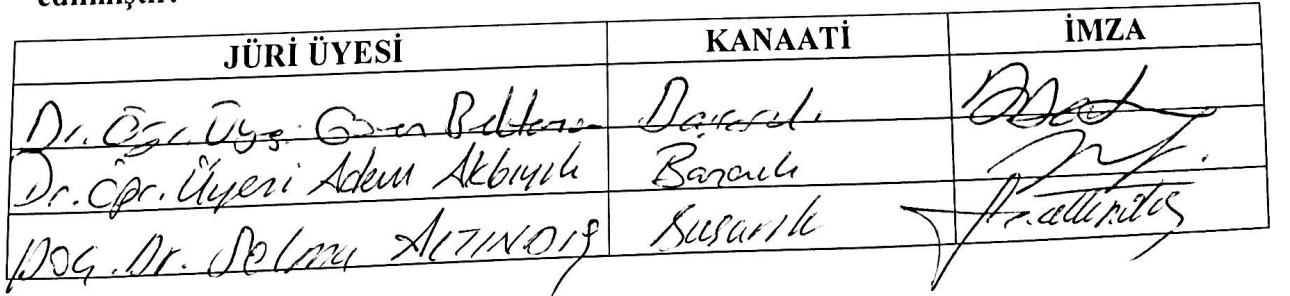 edilmiştir.
JÜRİ ÜYESİ KANAATİ İMZA
Dr. Öğr. Üyesi Başarılı
Dr. Öğr. Üyesi Adem Akbıyık Başarılı
Doç. Dr. Selma ALTINDIŞ Başarılı